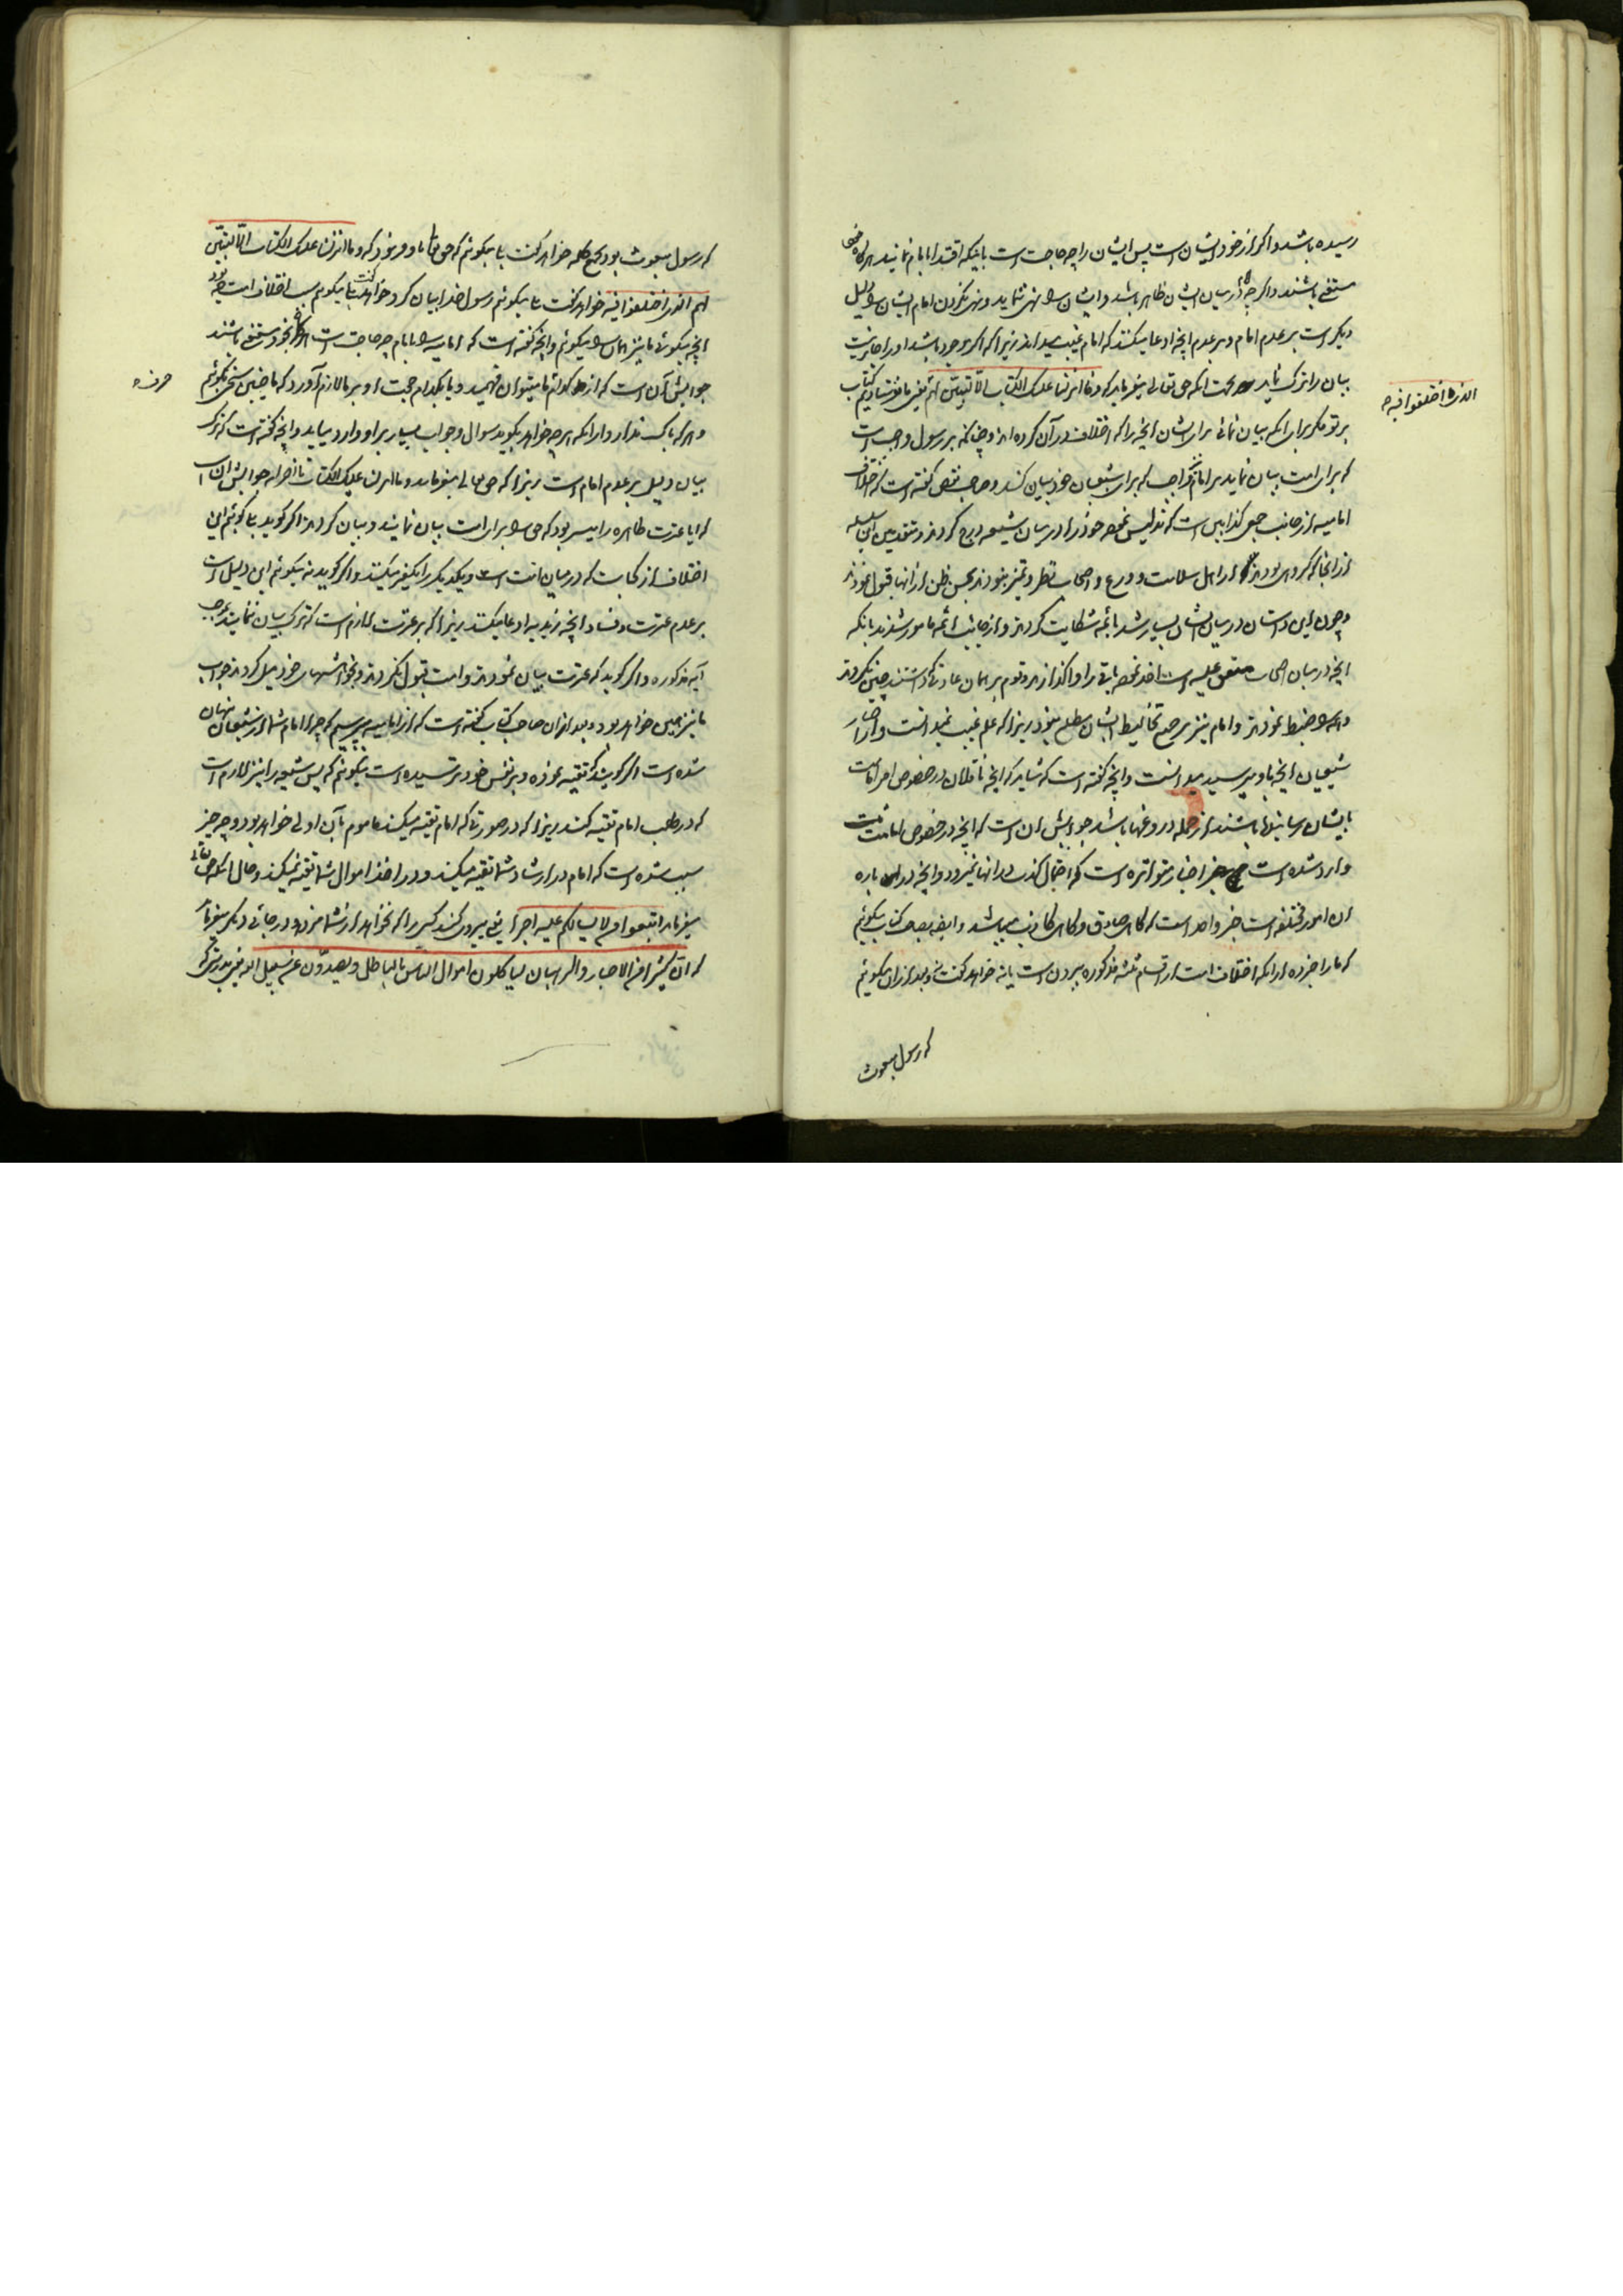 رسیده باشد و اگر از خود ایشان است پس ایشان را چه حاجت است باینکه اقتدا بامام نمایند هرگاه
مستغنی باشند و اگر چه در میان ایشان ظاهر باشد و ایشان را نهی ننماید و نهی نکردن امام ایشان را دلیل
دیگر است بر عدم امام و بر عدم انچه ادعا میکنند که امام غیب میداند زیرا که اگر موجود باشد او را جایز نیست
بیان را ترک نماید بجهت انکه حق تعالی میفرماید که و ما انزلنا علیک الکتاب الا لتبین لهم یعنی ما نفرستادیم کتاب
الذی اختلفوا فیه
بر تو مگر برای انکه بیان نمائی برای ایشان انچه را که اختلاف در آن کرده اند و چنانکه بر رسول واجب است
که برای امت بیان نماید بر امام واجب که برای شیعیان خود بیان کند و صاحب نقض گفته است که اختلاف
امامیه از جانب جمعی کذابین است که تدلیس نموده خود را در میان شیعه درج کردند و متقدمین این سلسله
از انجا که گروهی بودند از اهل سلامت و ورع و اصحاب نظر و تمیز نبودند بحسن ظن از انها قبول نمودند
و چون این داستان در میان ایشان بسیار شد بائمه شکایت کردند و از جانب ائمه مامور شدند بانکه
انچه در میان متفق علیه است اخذ نموده باقی را واگذارند و قوم بر همان عادتی که داشتند چنین نکردند
و همه را ضبط نمودند و امام نیز بر جمیع تخالیط ایشان مطلع نبود زیرا که علم غیب نمیدانست و از اخبار
شیعیان انچه باو میرسید میدانست و انچه گفته است که شاید که انچه ناقلان در خصوص امر امامت
بایشان رسانیده باشند از جمله دروغها باشد جوابش ان است که انچه در خصوص امامت
وارد شده است اخبار متواتره است که احتمال کذب در انها نمیرود و انچه در این باره
ان امور مختلفه است خبر واحد است که گاهی صادق و گاهی کاذب میباشد و ایضا بصاحب کتاب میگوئیم
که ما را خبر ده از انکه اختلاف امت از اقسام ثلثه مذکوره بیرون است یا نه خواهد گفت نه و بعد از ان میگوئیم
که رسول مبعوث
که رسول مبعوث بود بجمع کلمه خواهد گفت بلی میگوئیم که حق تعالی باو فرمود که و ما انزلنا علیک الکتاب الا لتبین
لهم الذی اختلفوا فیه خواهد گفت بلی میگوئیم رسول خدا بیان کرد خواهد گفت بلی میگوئیم سبب اختلاف امت چه بود
انچه میگوئی ما نیز همان را میگوئیم و انچه گفته است که امامیه را بامام چه حاجت است هرگاه بخود مستغنی باشند
جوابش آن است که از هر کدام ما میتوان فهمید و یا بکدام حجت او بر ما لازم آورد که ما چنین سخنی بگوئیم
و هر که باک ندارد از انکه هر چه خواهد بگوید سوال و جواب بسیار بر او وارد میاید و انچه گفته است که ترک
بیان دلیل بر عدم امام است زیرا که حق تعالی میفرماید و ما انزلنا علیک الکتاب تا آخر آیه جوابش ان است
که ایا عترت طاهره را میسر بود که حق را برای امت بیان نمایند و بیان کردند اگر گوید بلی گوئیم این
اختلاف از کجاست که در میان امت است و یکدیگر را تکفیر میکنند و اگر گوید نه میگوئیم این دلیل است
بر عدم عترت و فساد انچه زیدیه ادعا میکنند زیرا که بر عترت لازم است که ترک بیان ننمایند بموجب
آیه مذکوره و اگر گوید که عترت بیان نمودند و امت قبول نکردند و بخواهشهای خود میل کردند جواب
ما نیز همین خواهد بود و بعد از ان صاحب کتاب گفته است که از امامیه میپرسیم که چرا امام شما از شیعیان پنهان
شده است اگر گویند که تقیه نموده و بر نفس خود ترسیده است میگوئیم که پس شیعه را نیز لازم است
که در طلب امام تقیه کنند زیرا که در صورتی که امام تقیه میکند ماموم بآن اولی خواهد بود و چه چیز
سبب شده است که امام در ارشاد شما تقیه میکند و در اخذ اموال شما تقیه نمیکند و حال انکه حق تعالی
میفرماید اتبعوا من لا یسالکم علیه اجرا یعنی پیروی کنید کسی را که نخواهد از شما مزدی و در جائی دیگر میفرماید
که ان کثیرا من الاحبار و الرهبان لیاکلون اموال الناس بالباطل و یصدون عن سبیل الله یعنی بدرستی که